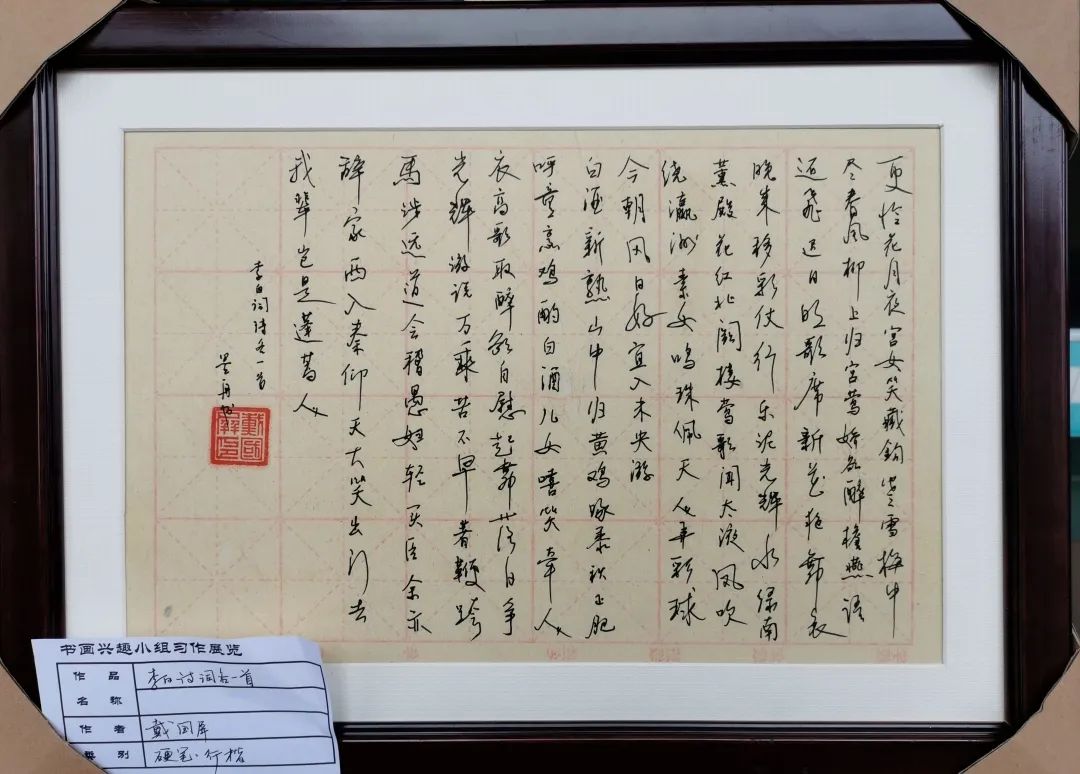 更怜花月夜宫女笑藏钩寒雪梅中
尽春风柳上归宫莺娇欲醉檐燕语
还飞迟日明歌席新花艳舞衣
晚来移彩仗行乐泥光辉水绿南
薰殿花红北阙楼莺歌闻太液凤吹
绕瀛洲素女鸣珠佩天人弄彩球
今朝风日好宜入未央游
白酒新熟山中归黄鸡啄黍秋正肥
呼童烹鸡酌白酒儿女嘻笑牵人
衣高歌取醉欲自慰起舞落日争
光辉游说万乘苦不早著鞭跨
马涉远道会稽愚妇轻买臣余亦
辞家西入秦仰天大笑出门去
我辈岂是蓬蒿人
李白词诗各一首
书画兴趣小组习作展览
作品名称 李白诗词各一首
作者 戴国屏
类别 硬笔·行楷